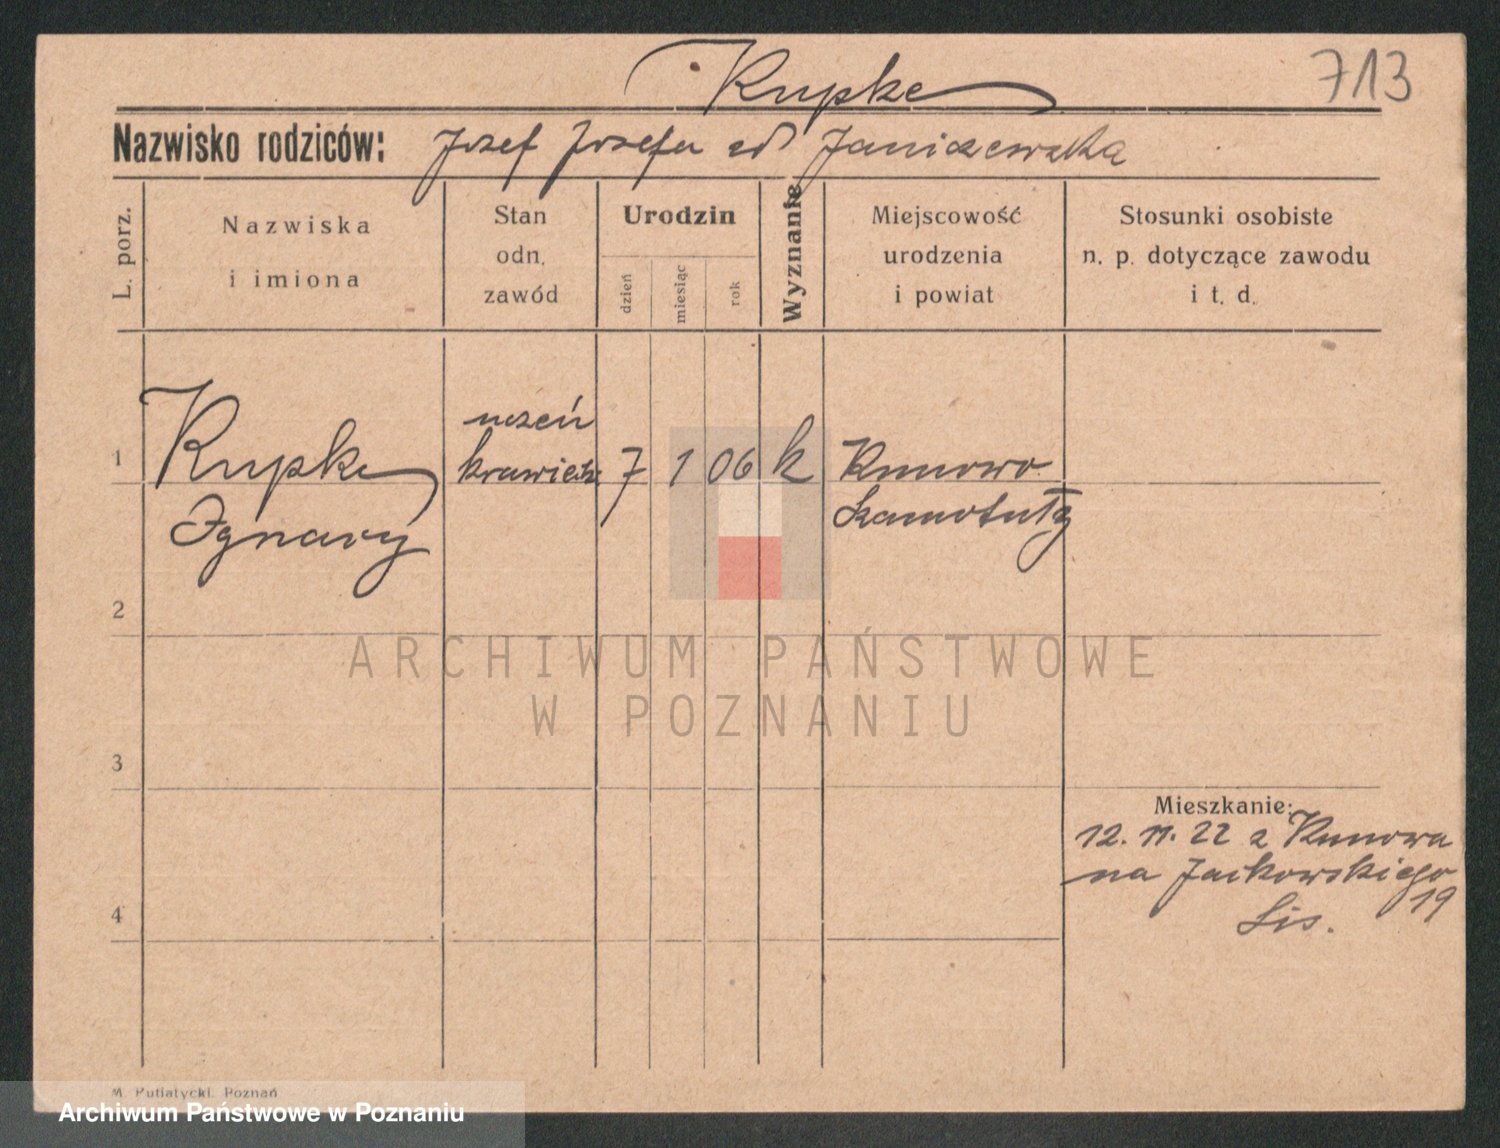 Kupke
713
Nazwisko rodziców: Józef Józefa zd Janiszewska
L. porz.
Nazwiska
i imiona
Stan
odn.
zawód
Urodzin
dzień
miesiąc
rok
Wyznanie
Miejscowość
urodzenia
i powiat
Stosunki osobiste
n. p. dotyczące zawodu
i t. d.
1
Kupke
Ignacy
uczeń
7
1
06
k
Kunowo
2
3
4
Mieszkanie:
12. 11. 22 z Kunowa
na Jackowskiego
19
Lis.
ARCHIWUM PAŃSTWOWE
W POZNANIU
M. Putiatycki. Poznań
Archiwum Państwowe w Poznaniu